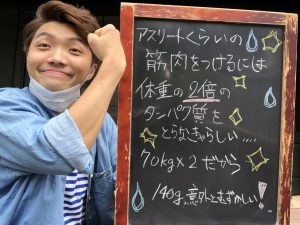 アスリートくらいの
筋肉をつけるには
体重の2倍の
タンパク質を
とらなきゃらしい...
70kg×2だから
140g,意外とむずかしい!